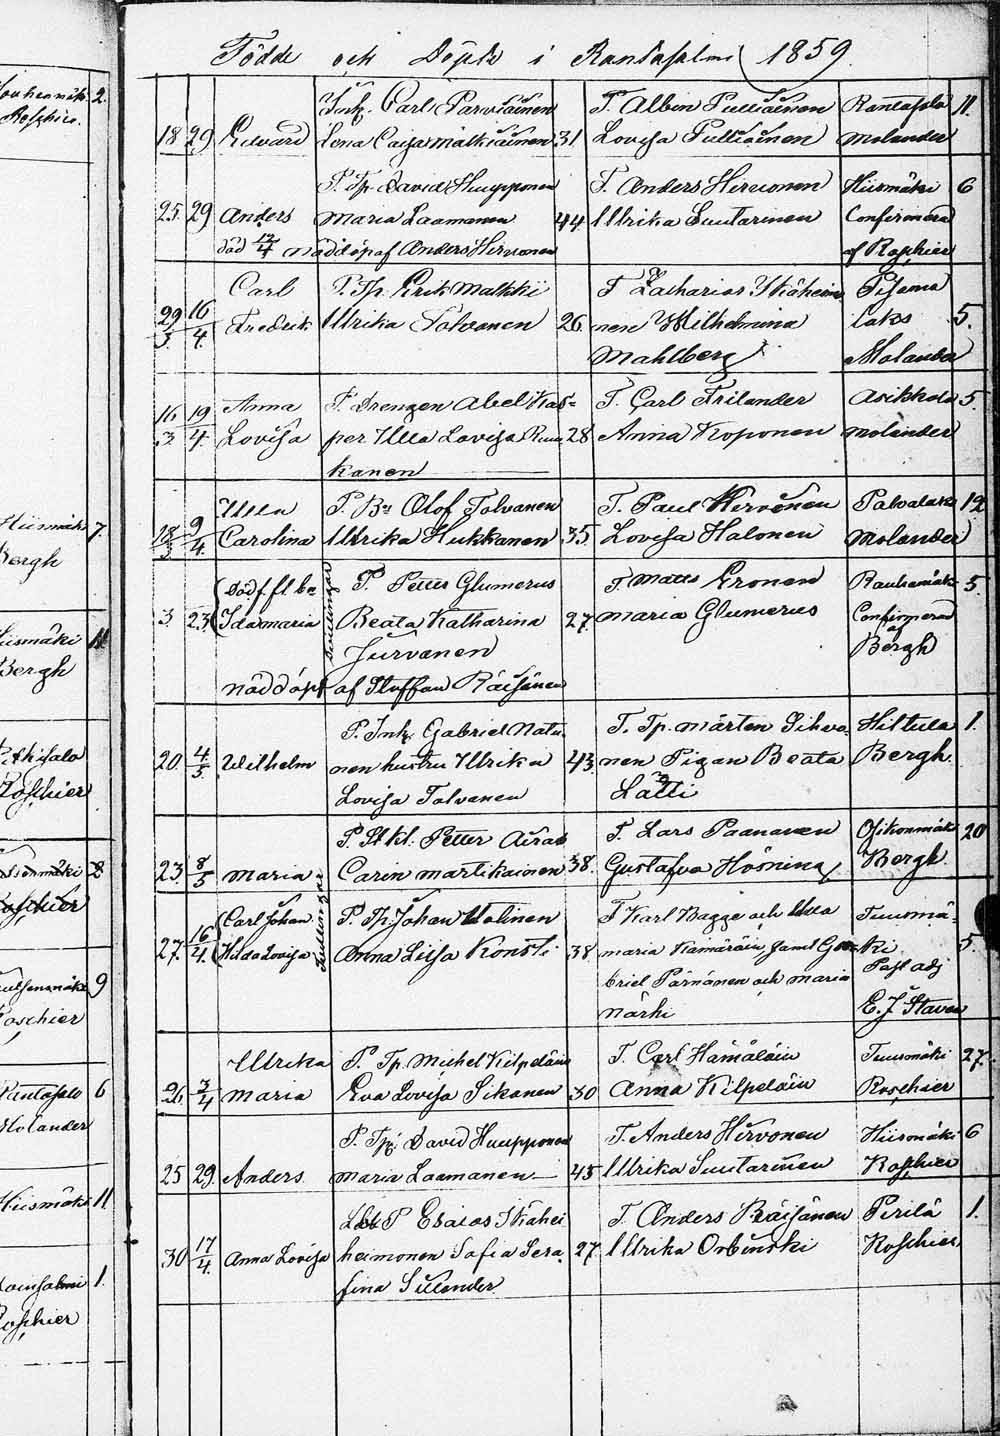 Födde och Döpte i Rantasalmi 1859.
Inh. Carl Parviainen T. Albin Pulliainen Rantasalo 11.
18 29 Edvard Lena Caisa Malkiainen 31 Lovisa Pulliainen Molander
P. Tp. David Huupponen T. Anders Hirvonen Hiismäki 6
25. 29 Anders Maria Laamanen 44 Ullrika Suutarinen Confirmerad
död 12/4 nöddöp af Anders Hirvonen af Roschier
Carl P. Tp. Erik Malkki T. Zacharias Ikäheim Pisama
29/3. 16/4. Fredrik Ullrika Tolvanen 26. nen Wilhelmina laks 5.
Mahlberg Molander
Anna P. Drengen Abel Kas= T. Carl Frilander Asikkala 5.
16/3 19/4. Lovisa per Ulla Lovisa 28 Anna Koponen Molander
kanen
Ulla P. Bn Olof Tolvanen T. Paul Hirvonen Putvalaks 12
18/3 9/4. Carolina Ullrika Hukkanen 35. Lovisa Halonen Molander
Dödf. fl. P. Petter Glumerus T. Matts Eronen Rauhamäki 5.
3 23. Ida Maria Tvillingar Beata Katharina 27. Maria Glumerus Confirmerad
Jurvanen af Bergh
nöddöpt af Staffan Räisänen
P. Inh. Gabriel Natu T. Tp. Mårten Sihvo Hiltula 1
20. 4/5. Wilhelm nen hustru Ullrika 43. nen Pigan Beata Bergh.
Lovisa Tolvanen Lätti
P. St kl. Petter Airas T. Lars Paananen Osikonmäki 20
23. 8/5 Maria Carin Martikainen 38. Gustafva Hosnina Bergh.
Carl Johan P. Tp. Johan Valinen T. Karl Bagge och Ulla Tuusmä=
27. 16/4. Hilda Lovisa Tvillingar Anna Lisa Konsti 38 maria Kämäräin, samt Ga ki 5.
briel Pärnänen och maria Past adj
Närhi E. J. Staven
Ullrika P. Tp. Michel Kilpeläin T. Carl Hämäläin Tuusmäki 27.
26. 3/4 Maria Eva Lovisa Sikanen 30 Anna Kilpeläin Roschier
P. Tp. David Huupponen T. Anders Hirvonen Hiismäki 6
25 29. Anders. Maria Laamanen 45 Ullrika Suutarinen Roschier
P Esaias Ikähei T. Anders Räisänen Pirilä 1.
30 17/4. Anna Lovisa heimonen Sofia Sera 27. Ullrika Orbinski Roschier
fina Silander
2.
Roschier.
Hiismäki 7.
Bergh
Hiismäki 11
Bergh
Roschier
2
Roschier
9
Roschier
Rantasalo 6
Molander
Hiismäki 11
1.
Roschier